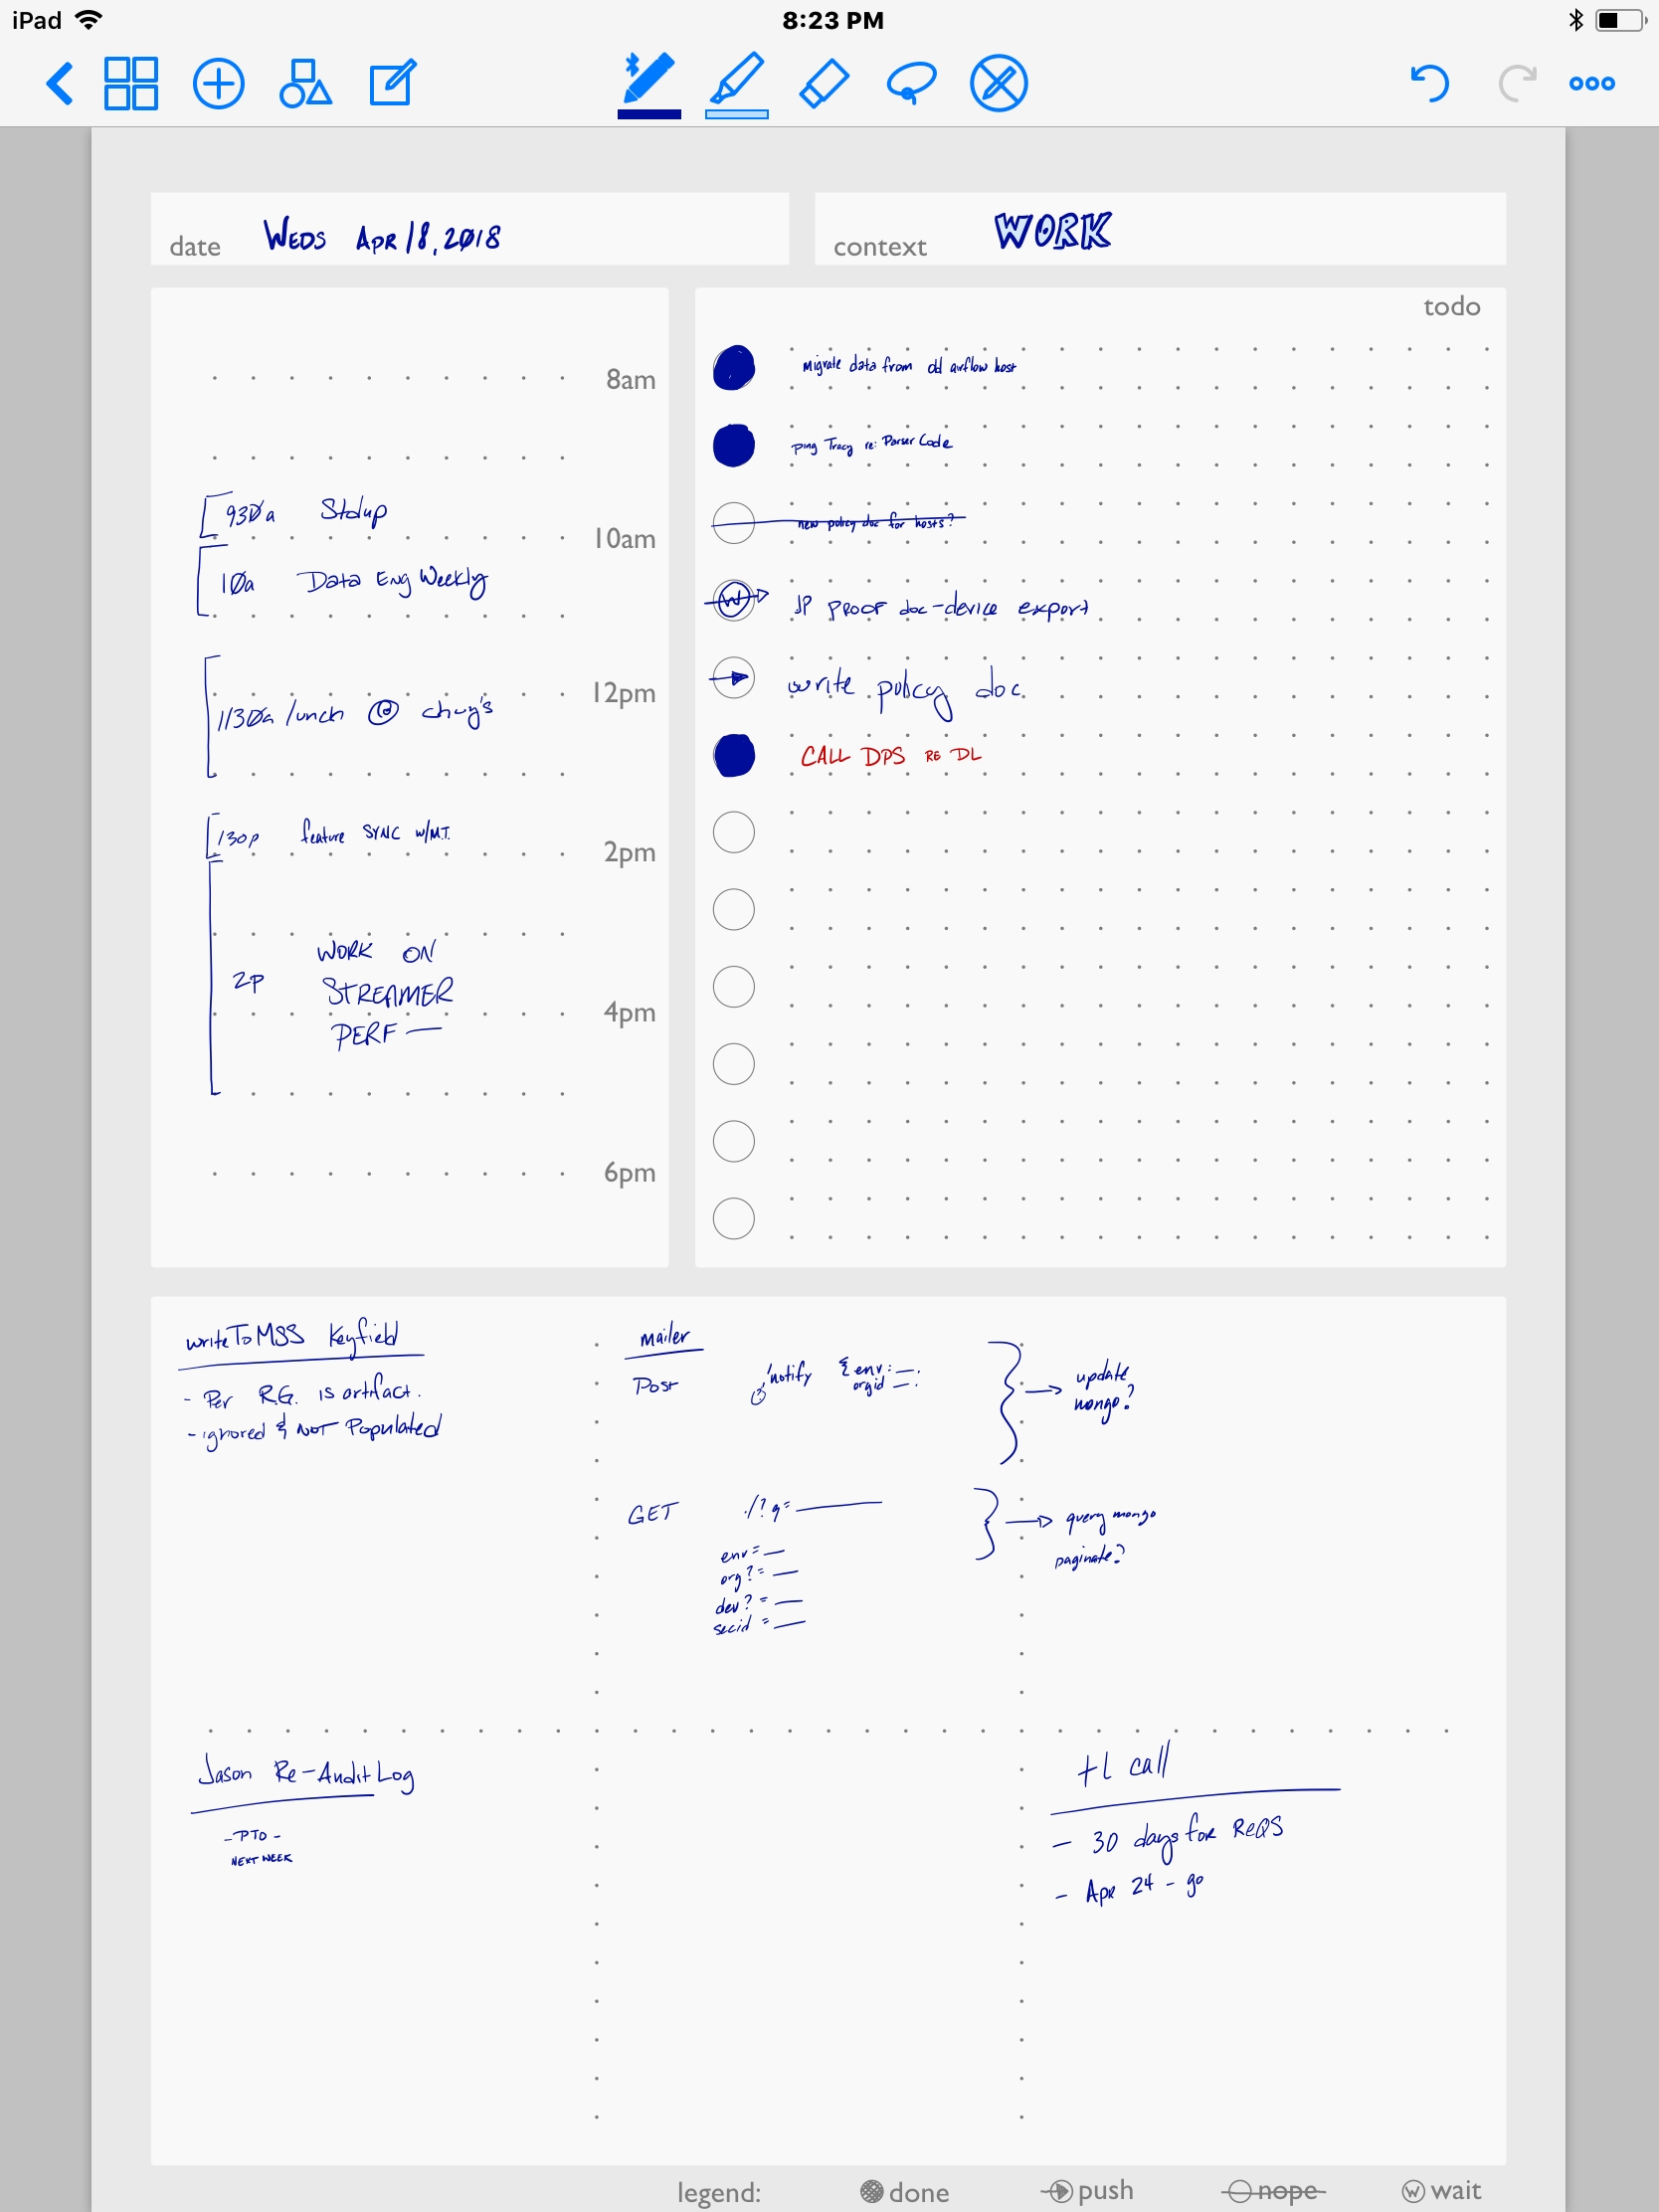 iPad
8:23 PM
date WEDS APR 18, 2018
context WORK
8am
930a Stdup
10am
10a Data Eng Weekly
12pm
1130a lunch @ chuy's
130p feature SYNC w/M.T.
2pm
2p WORK ON
STREAMER
PERF —
4pm
6pm
todo
migrate data from old airflow host
ping Tracy re: Parser Code
new policy doc for hosts?
W JP PROOF doc-device export
write policy doc
CALL DPS RE DL
writeToMSS Keyfield
- Per R.G. is artifact.
- ignored & NOT Populated
mailer
Post /notify { env: —:
orgid —:
update
mongo?
GET ./?q= ———
env= —
org?= —
dev?= —
secid = —
query mongo
paginate?
Jason Re-Audit Log
- PTO -
NEXT WEEK
HL call
- 30 days for REQS
- Apr 24 - go
legend: done push nope W wait